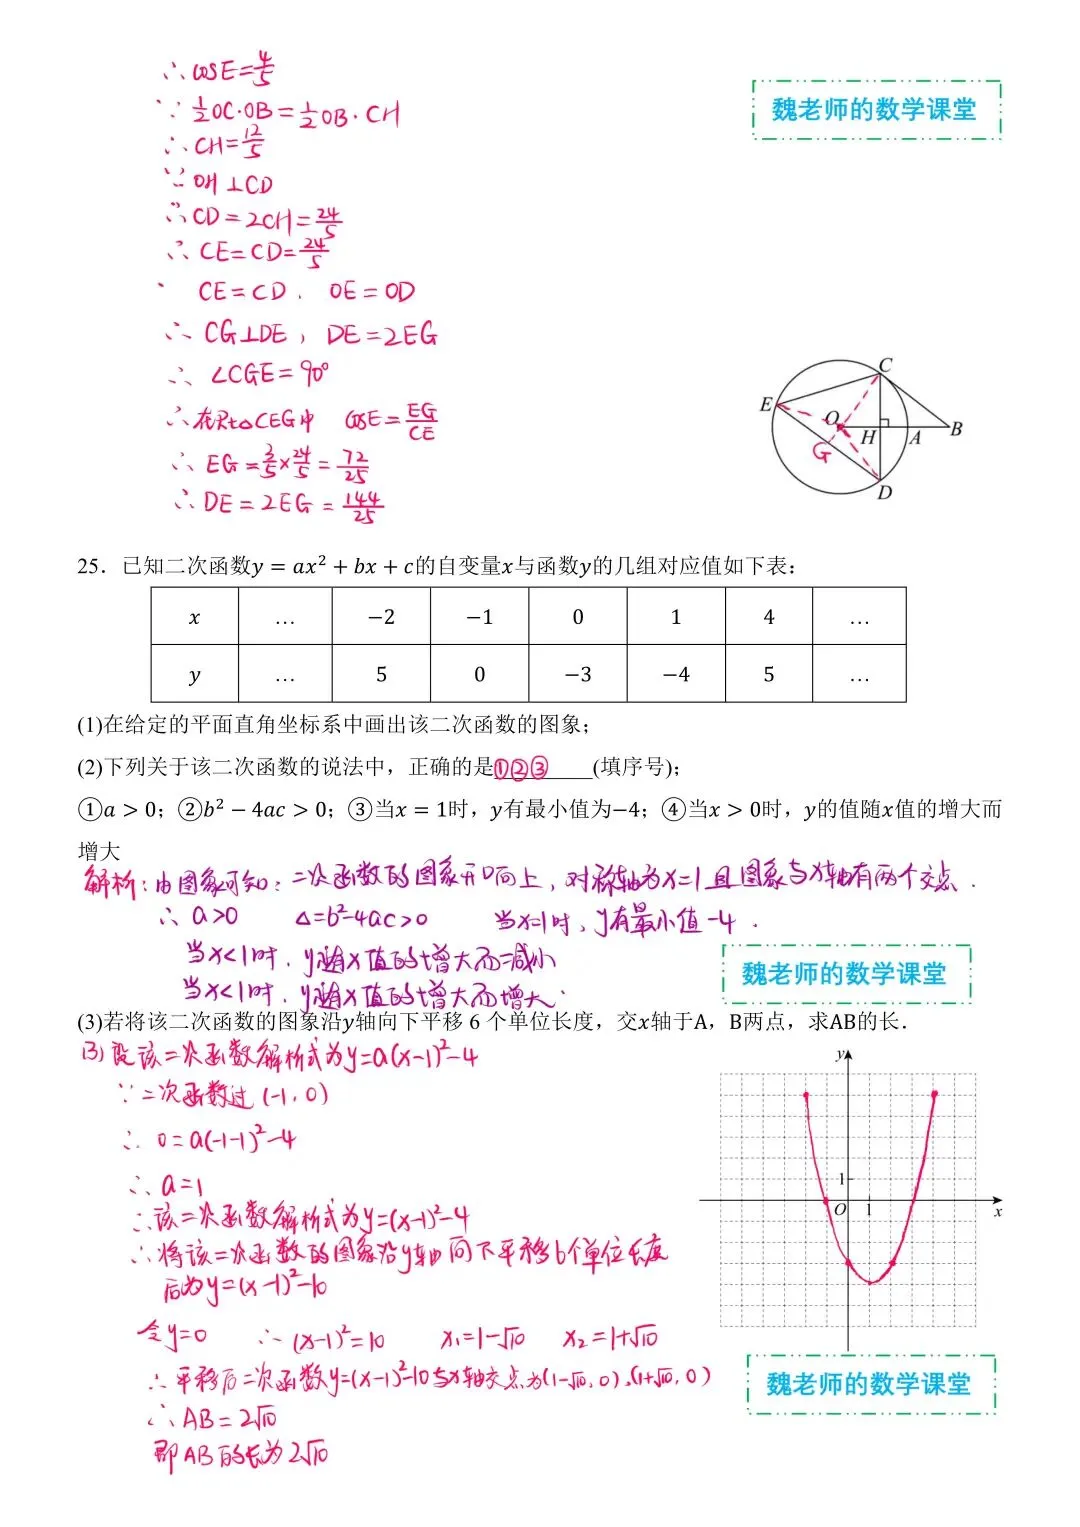 ∴ cosE=4/5
∵ 1/2 OC·OB=1/2 OB·CH
魏老师的数学课堂
∴ CH=12/5
∵ OH⊥CD
∴ CD=2CH=24/5
∴ CE=CD=24/5
∵ CE=CD, OE=OD
∴ CG⊥DE, DE=2EG
∴ ∠CGE=90°
∴在Rt△CEG中 cosE=EG/CE
∴ EG=3/5×24/5=72/25
∴ DE=2EG=144/25
C
E
O
H
A
B
G
D
25. 已知二次函数y=ax²+bx+c的自变量x与函数y的几组对应值如下表:
x … −2 −1 0 1 4 …
y … 5 0 −3 −4 5 …
(1)在给定的平面直角坐标系中画出该二次函数的图象;
(2)下列关于该二次函数的说法中,正确的是①②③(填序号);
①a>0;②b²−4ac>0;③当x=1时,y有最小值为−4;④当x>0时,y的值随x值的增大而
增大
解析:由图象可知:二次函数的图象开口向上,对称轴为x=1且图象与x轴有两个交点.
∴ a>0 △=b²-4ac>0 当x=1时,y有最小值-4.
当x<1时,y随x值的增大而减小
当x<1时,y随x值的增大而增大.
魏老师的数学课堂
(3)若将该二次函数的图象沿y轴向下平移 6 个单位长度,交x轴于A,B两点,求AB的长.
(3)设该二次函数解析式为y=a(x-1)²-4
∵二次函数过(-1,0)
∴ 0=a(-1-1)²-4
∴ a=1
∴该二次函数解析式为y=(x-1)²-4
∴将该二次函数的图象沿y轴向下平移6个单位长度
后为y=(x-1)²-10
令y=0 ∴ (x-1)²=10 x₁=1-√10 x₂=1+√10
∴平移后二次函数y=(x-1)²-10与x轴交点为(1-√10,0),(1+√10,0)
∴ AB=2√10
即AB的长为2√10
y
1
O
1
x
魏老师的数学课堂